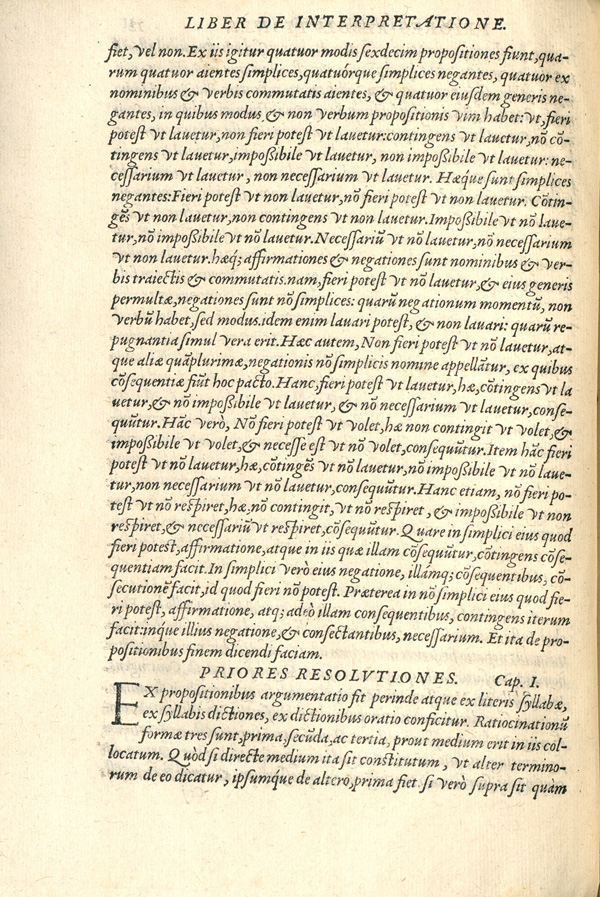 LIBER DE INTERPRETATIONE.
fiet, vel non. Ex iis igitur quatuor modis sexdecim propositiones fiunt, qua-
rum quatuor aientes simplices, quatuórque simplices negantes, quatuor ex
nominibus & verbis commutatis aientes, & quatuor eiusdem generis ne-
gantes, in quibus modus & non verbum propositionis vim habet: vt, fieri
potest vt lauetur, non fieri potest vt lauetur: contingens vt lauetur, nō cō-
tingens vt lauetur, impoßibile vt lauetur, non impoßibile vt lauetur: ne-
cessarium vt lauetur, non necessarium vt lauetur. Hæque sunt simplices
negantes: Fieri potest vt non lauetur, nō fieri potest vt non lauetur. Cōtin-
gēs vt non lauetur, non contingens vt non lauetur. Impoßibile vt nō laue-
tur, nō impoßibile vt nō lauetur. Necessariū vt nō lauetur, nō necessarium
vt non lauetur. hæq; affirmationes & negationes sunt nominibus & ver-
bis traiectis & commutatis. nam, fieri potest vt nō lauetur, & eius generis
permultæ, negationes sunt nō simplices: quarū negationum momentū, non
verbū habet, sed modus. idem enim lauari potest, & non lauari: quarū re-
pugnantia simul vera erit. Hæc autem, Non fieri potest vt nō lauetur, at-
que aliæ quāplurimæ, negationis nō simplicis nomine appellātur, ex quibus
cōsequentiæ fiūt hoc pacto. Hanc, fieri potest vt lauetur, hæ, cōtingens vt la
uetur, & nō impoßibile vt lauetur, & nō necessarium vt lauetur, conse-
quūtur. Hāc verò, Nō fieri potest vt volet, hæ non contingit vt volet, &
impoßibile vt volet, & necesse est vt nō volet, consequūtur. Item hāc fieri
potest vt nō lauetur, hæ, cōtingēs vt nō lauetur, nō impoßibile vt nō laue-
tur, non necessarium vt nō lauetur, consequūtur. Hanc etiam, nō fieri po-
test vt nō respiret, hæ, nō contingit, vt nō respiret, & impoßibile vt non
respiret, & necessariū vt respiret, cōsequūtur. Quare in simplici eius quod
fieri potest, affirmatione, atque in iis quæ illam cōsequūtur, cōtingens cōse-
quentiam facit. In simplici verò eius negatione, illámq; cōsequentibus, cō-
secutionē facit, id quod fieri nō potest. Præterea in nō simplici eius quod fie-
ri potest, affirmatione, atq; adeò illam consequentibus, contingens iterum
facit: inque illius negatione, & consectantibus, necessarium. Et ita de pro-
positionibus finem dicendi faciam.
PRIORES RESOLVTIONES. Cap. 1.
EX propositionibus argumentatio fit perinde atque ex literis syllabæ,
ex syllabis dictiones, ex dictionibus oratio conficitur. Ratiocinationū
formæ tres sunt, prima, secūda, ac tertia, prout medium erit in iis col-
locatum. Quòd si directe medium ita sit constitutum, vt alter termino-
rum de eo dicatur, ipsumque de altero, prima fiet. si verò supra sit quàm